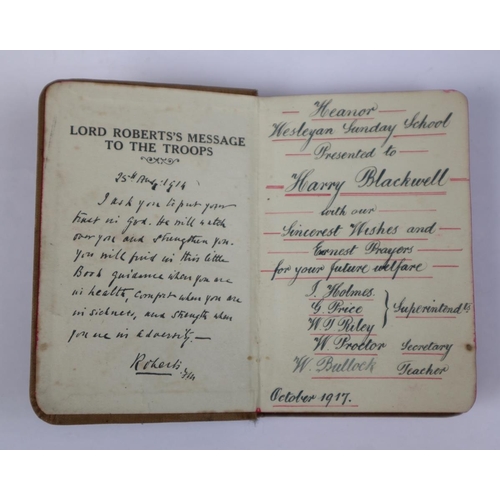 LORD ROBERTS'S MESSAGE
TO THE TROOPS
25th Aug. 1914
I ask you to put your
trust in God. He will watch
over you and strengthen you.
You will find in this little
Book guidance when you are
in health, comfort when you are
in sickness, and strength when
you are in adversity.—
Roberts
Heanor
Wesleyan Sunday School
Presented to
Harry Blackwell
with our
Sincerest Wishes and
Ernest Prayers
for your future welfare
J. Holmes.
G. Price
W. T. Riley
Superintendts
W. Proctor Secretary
W. Bullock Teacher
October 1917.